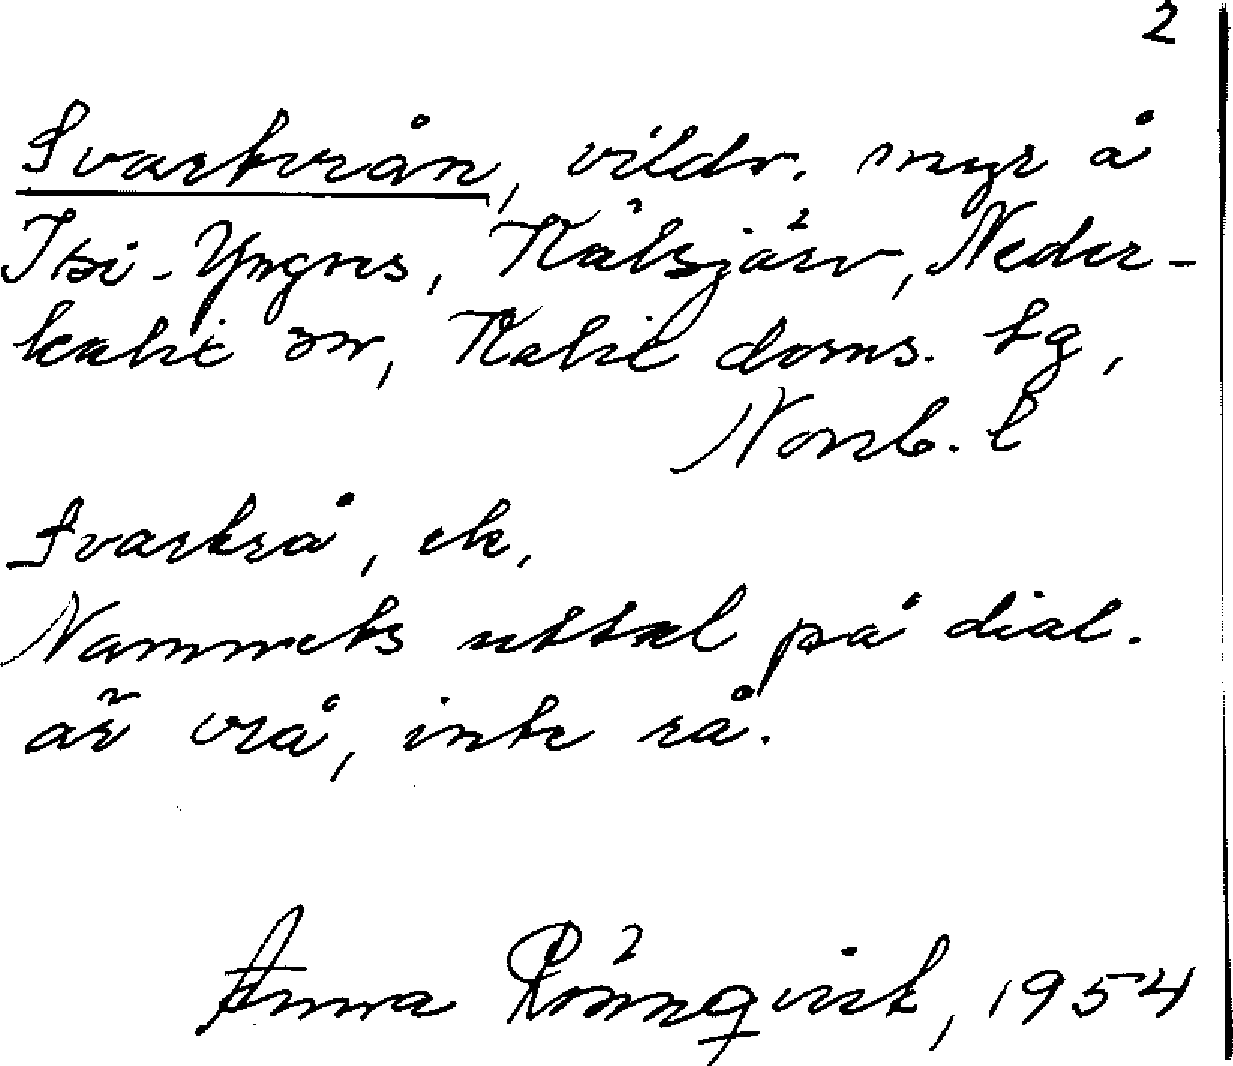 2
Svartvrån, vildv. myr å
Itri-Yngres, Kälsjärv, Neder-
kalix sn, Kalix doms. tg,
Norrb. l
Svartrå, ek.
Namnets uttal på dial.
är vrå, inte rå.
Anna Rönnqvist, 1954